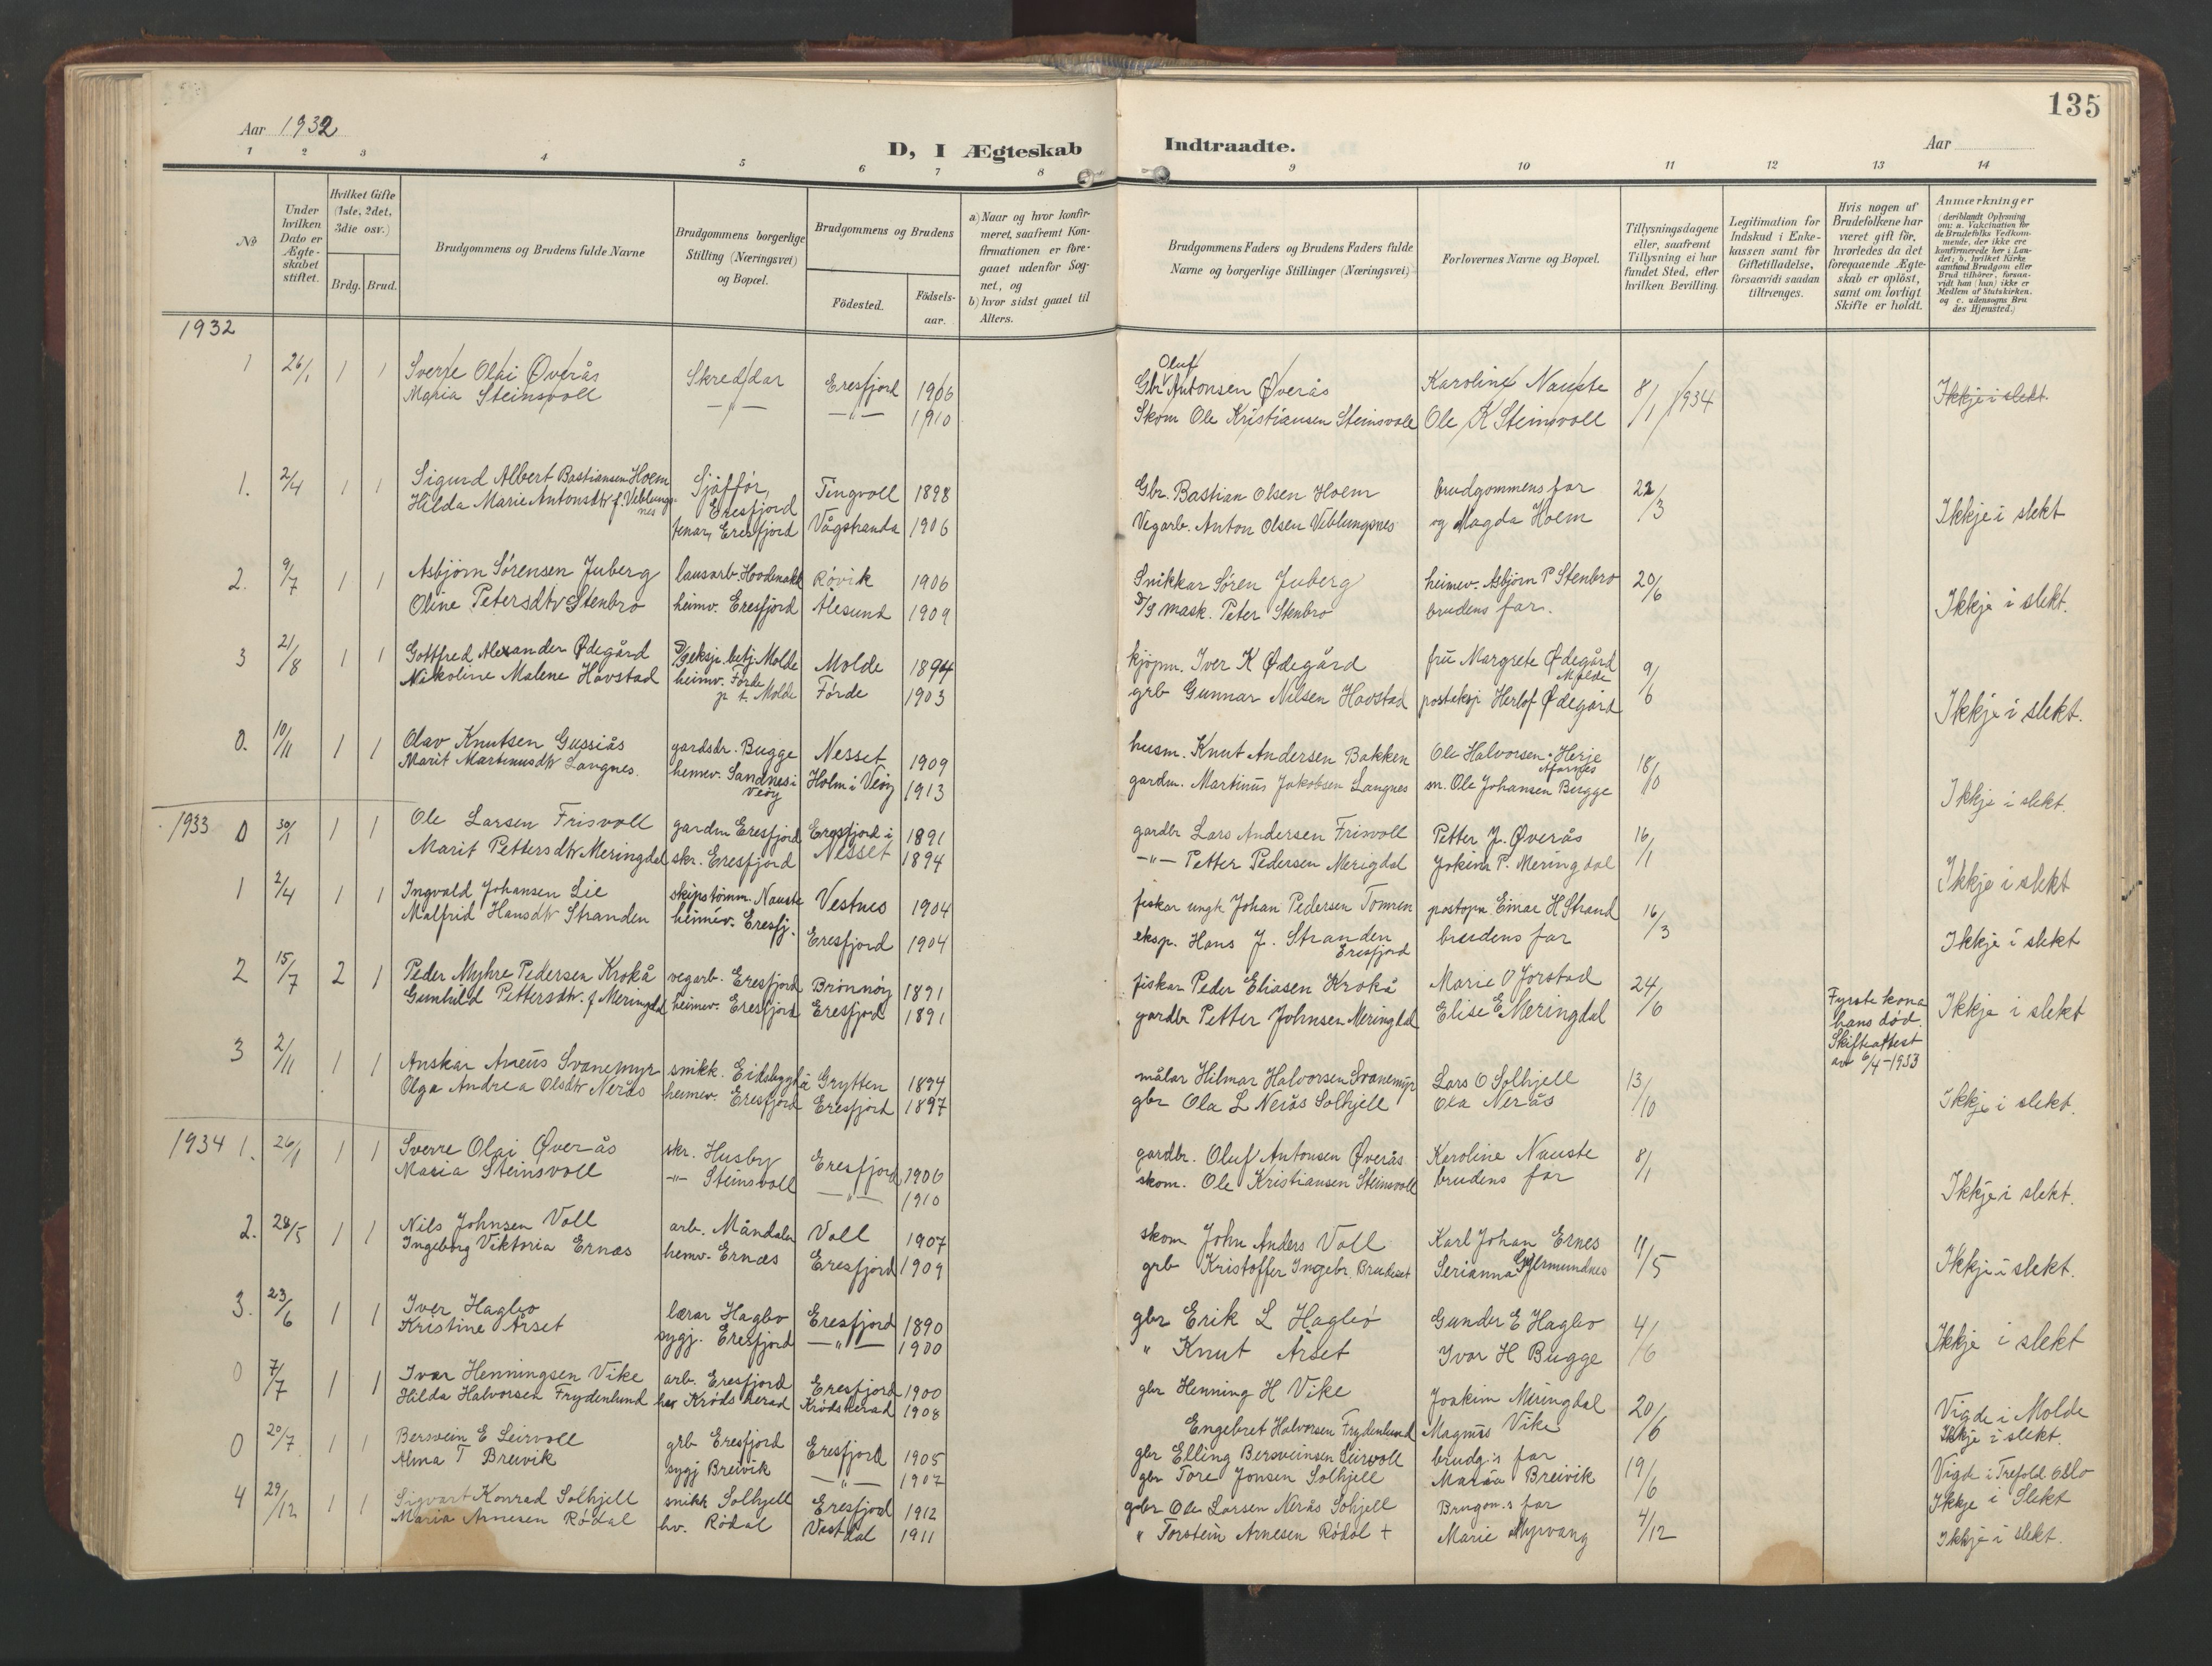 135
Aar 1932
D, I Ægteskab Indtraadte.
Aar
1 2 3 4 5 6 7 8 9 10 11 12 13 14
No
Under hvilken Dato er Ægteskabet stiftet.
Hvilket Gifte (1ste, 2det, 3die osv.)
Brdg. Brud.
Brudgommens og Brudens fulde Navne
Brudgommens borgerlige Stilling (Næringsvei) og Bopæl.
Brudgommens og Brudens
Födested.
Födsels-aar.
a) Naar og hvor konfirmeret, saafremt Konfirmationen er foregaaet udenfor Sognet, og
b) hvor sidst gaaet til Alters.
Brudgommens Faders og Brudens Faders fulde Navne og borgerlige Stillinger (Næringsvei)
Forlovernes Navne og Bopæl.
Tillysningsdagene eller, saafremt Tillysning ei har fundet Sted, efter hvilken Bevilling.
Legitimation for Indskud i Enkekassen samt for Giftetilladelse, forsaavidt saadan tiltrænges.
Hvis nogen af Brudefolkene har været gift för, hvorledes da det foregaaende Ægteskab er oplöst, samt om lovligt Skifte er holdt.
Anmærkninger
(deriblandt Oplysning om: a. Vakcination for de Brudefolks Vedkommende, der ikke ere konfirmerede her i Landet; b. hvilket Kirkesamfund Brudgom eller Brud tilhörer, forsaavidt han (hun) ikke er Medlem af Statskirken, og c. udensogns Brudes Hjemsted.)
1932
1 26/1 1 1 Sverre Olai Øverås Skreddar Eresfjord 1906 Gbr Oluf Antonsen Øverås Karoline Nauste 8/1 1934 Ikkje i slekt.
Maria Steinsvoll —"— —"— 1910 Skom Ole Kristiansen Steinsvoll Ole K Steinsvoll
1. 2/4 1 1 Sigurd Albert Bastiansen Hoem Sjåffør, Eresfjord Tingvoll 1898 Gbr. Bastian Olsen Hoem brudgommens far 22/3 Ikkje i slekt
Hilda Marie Antonsdtr f. Veblungsnes tenar, Eresfjord Vågstranda 1906 Vegarb. Anton Olsen Veblungsnes og Magda Hoem
2. 9/7 1 1 Asbjørn Sørensen Juberg lausarb. Røvik 1906 Snikkar Søren Juberg heimev. Asbjørn P Stenbro 20/6 Ikkje i slekt.
Oline Petersdtr Stenbro heimv. Eresfjord Ålesund 1909 D/S mask. Peter Stenbro brudens far.
3 21/8 1 1 Gottfred Alexander Ødegård D/S eksp. betj. Molde Molde 1894 kjøpm. Iver K Ødegård fru Margrete Ødegård Molde 9/6 Ikkje i slekt.
Nikoline Malene Hovstad heimv. Førde p t. Molde Førde 1903 grb Gunnar Nilsen Hovstad posteksp Herlof Ødegård
0. 10/11 1 1 Olav Knutsen Gussiås gardsdr. Bugge Nesset 1909 husm. Knut Andersen Bakken Ole Halvorsen Herje Åfarnes 18/10 Ikkje i slekt.
Marit Martinusdtr Langnes. hemev. Sandnes i Veøy Holm i Veøy 1913 gardm. Martinus Jakobsen Langnes m. Ole Johansen Bugge
1933 0 30/1 1 1 Ole Larsen Frisvoll gardm Eresfjord Eresfjord i 1891 gardbr Lars Andersen Frisvoll Petter J. Øverås 16/1 Ikkje i slekt
Marit Pettersdtr Meringdal skr. Eresfjord Nesset 1894 —"— Petter Pedersen Merigdal Jokim P. Meringdal
1 2/4 1 1 Ingvald Johansen Lie skipstømm. Nauste Vestnes 1904 fiskar ungk Johan Pedersen Tomren postopn Einar H Strand 16/3 Ikkje i slekt
Malfrid Hansdtr Stranden heimev. Eresfj. Eresfjord 1904 eksp. Hans J. Stranden Eresfjord brudens far
2 15/7 2 1 Peder Myhre Pedersen Krokå vegarb. Eresfjord Brønnøy 1891 fiskar Peder Eliasen Krokå Marie O Jorstad 24/6 Fyrste kona hans død. Skifteattest av 6/4-1933 Ikkje i slekt
Gunhild Pettersdtr. f Meringdal heimev. Eresfjord Eresfjord 1891 gardbr Petter Johnsen Meringdal Elise E Meringdal
3 2/11 1 1 Anskar Areus Svanemyr snikk. Eidsbygda Grytten 1894 målar Hilmar Halvorsen Svanemyr Lars O Solhjell 13/10 Ikkje i slekt.
Olga Andrea Olsdtr Nerås heimev. Eresfjord Eresfjord 1897 gbr Ola L Nerås Solhjell Ola Nerås
1934 1. 26/1 1 1 Sverre Olai Øverås skr. Husby Eresfjord 1906 gardbr. Oluf Antonsen Øverås Karoline Nauste 8/1 Ikkje i slekt.
Maria Steinsvoll —"— Steinsvoll —"— 1910 skom. Ole Kristiansen Steinsvoll brudens far
2. 28/5 1 1 Nils Johnsen Voll arb. Måndalen Voll 1907 skom John Anders Voll Karl Johan Ernes 11/5 Ikkje i slekt.
Ingeborg Viktoria Ernæs hemv. Ernæs Eresfjord 1909 grb Kristoffer Ingebr. Brudeset Serianna Gjermundnes
3. 23/6 1 1 Iver Hagbø lærar Hagbø Eresfjord 1890 gbr Erik L Hagbø Gunder E Hagbø 4/6 Ikkje i slekt
Kristine Årset sygj. Eresfjord —"— 1900 " Knut Årset Ivar H Bugge
0 7/7 1 1 Ivar Henningsen Vike arb. Eresfjord Eresfjord 1900 gbr Henning H Vike Joakim Meringdal 20/6 Vigde i Molde
Hilda Halvorsen Frydenlund Krødsherad Krødsherad 1908 Engebret Halvorsen Frydenlund Magnus Vike Ikkje i slekt.
0 20/7 1 1 Bersvein E Leirvoll grb Eresfjord Eresfjord 1905 gbr Elling Bersveinsen Leirvoll brudg:s far 19/6 Vigd i Trefold Oslo
Alma T Breivik sygj Breivik —"— 1907 gbr Tore Jonsen Solhjell Maria Breivik Ikkje i Slekt
4 29/12 1 1 Sigvart Konrad Solhjell snikk Solhjell Eresfjord 1912 gbr Ole Larsen Nerås Solhjell Brugom.s far 4/12 Ikkje i slekt.
Maria Arnesen Rødal hv. Rødal Vestdal 1911 " Torstein Arnesen Rødal + Marie Myrvang